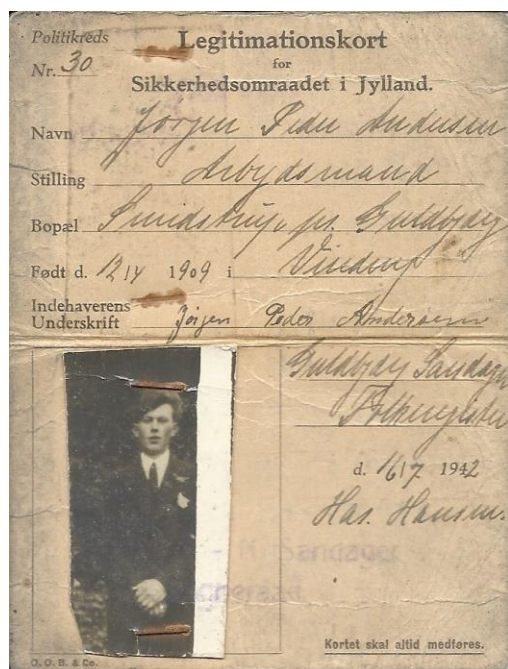 Politikreds
Nr. 30
Legitimationskort
for
Sikkerhedsomraadet i Jylland.
Navn Jørgen Peder Andersen
Stilling Arbejdsmand
Bopæl Smidstrup, pr. Guldbjerg
Født d. 12/4 1909 i Vindrup
Indehaverens
Underskrift Jörgen Peder Andersen
Guldbjerg
Folkeregister
d. 16/7 1942
Has. Hansen.
Kortet skal altid medføres.
O. O. B. & Co.